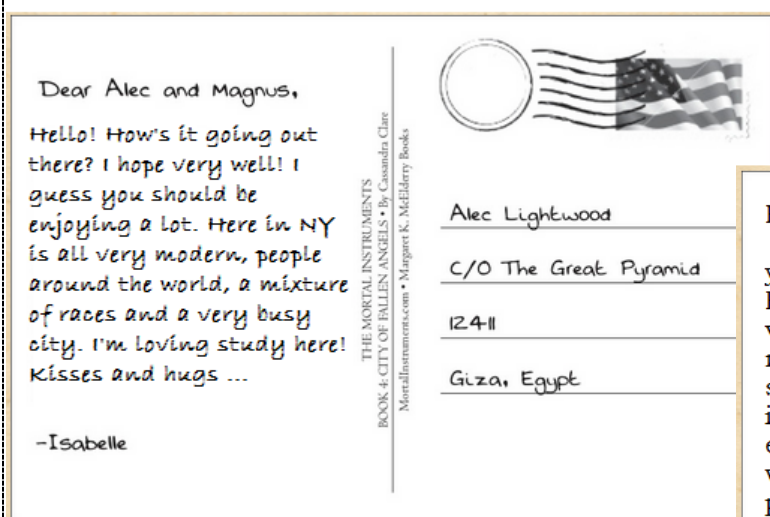 Dear Alec and Magnus,
Hello! How's it going out
there? I hope very well! I
guess you should be
enjoying a lot. Here in NY
is all very modern, people
around the world, a mixture
of races and a very busy
city. I'm loving study here!
Kisses and hugs ...
-Isabelle
THE MORTAL INSTRUMENTS
BOOK 4: CITY OF FALLEN ANGELS • By Cassandra Clare
MortalInstruments.com • Margaret K. McElderry Books
Alec Lightwood
C/O The Great Pyramid
12411
Giza, Egypt